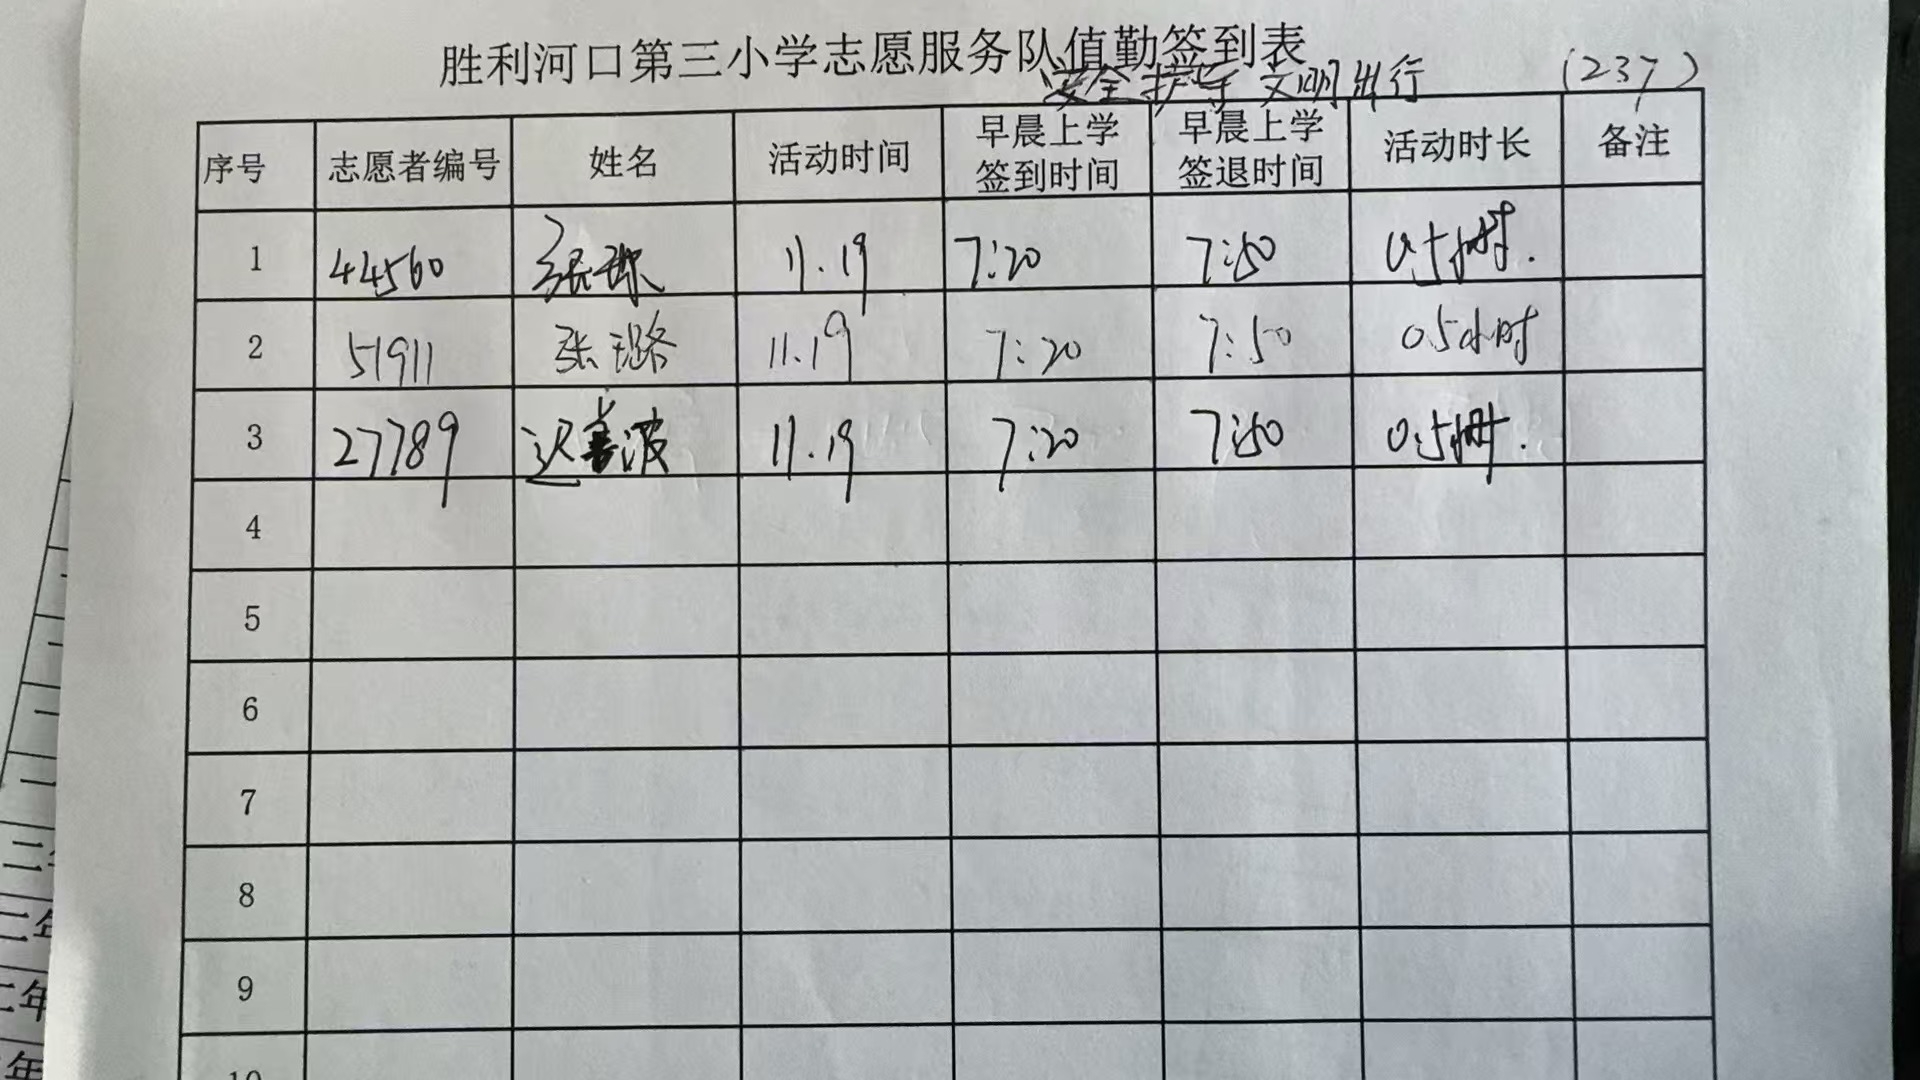 胜利河口第三小学志愿服务队值勤签到表
安全护学 文明出行 (237)
序号 志愿者编号 姓名 活动时间 早晨上学签到时间 早晨上学签退时间 活动时长 备注
1 44560 张琼 11.19 7:20 7:50 0.5小时.
2 51911 张璐 11.19 7:20 7:50 0.5小时
3 27789 迟善波 11.19 7:20 7:50 0.5小时.
4
5
6
7
8
9
10
二年
二年
二年
年